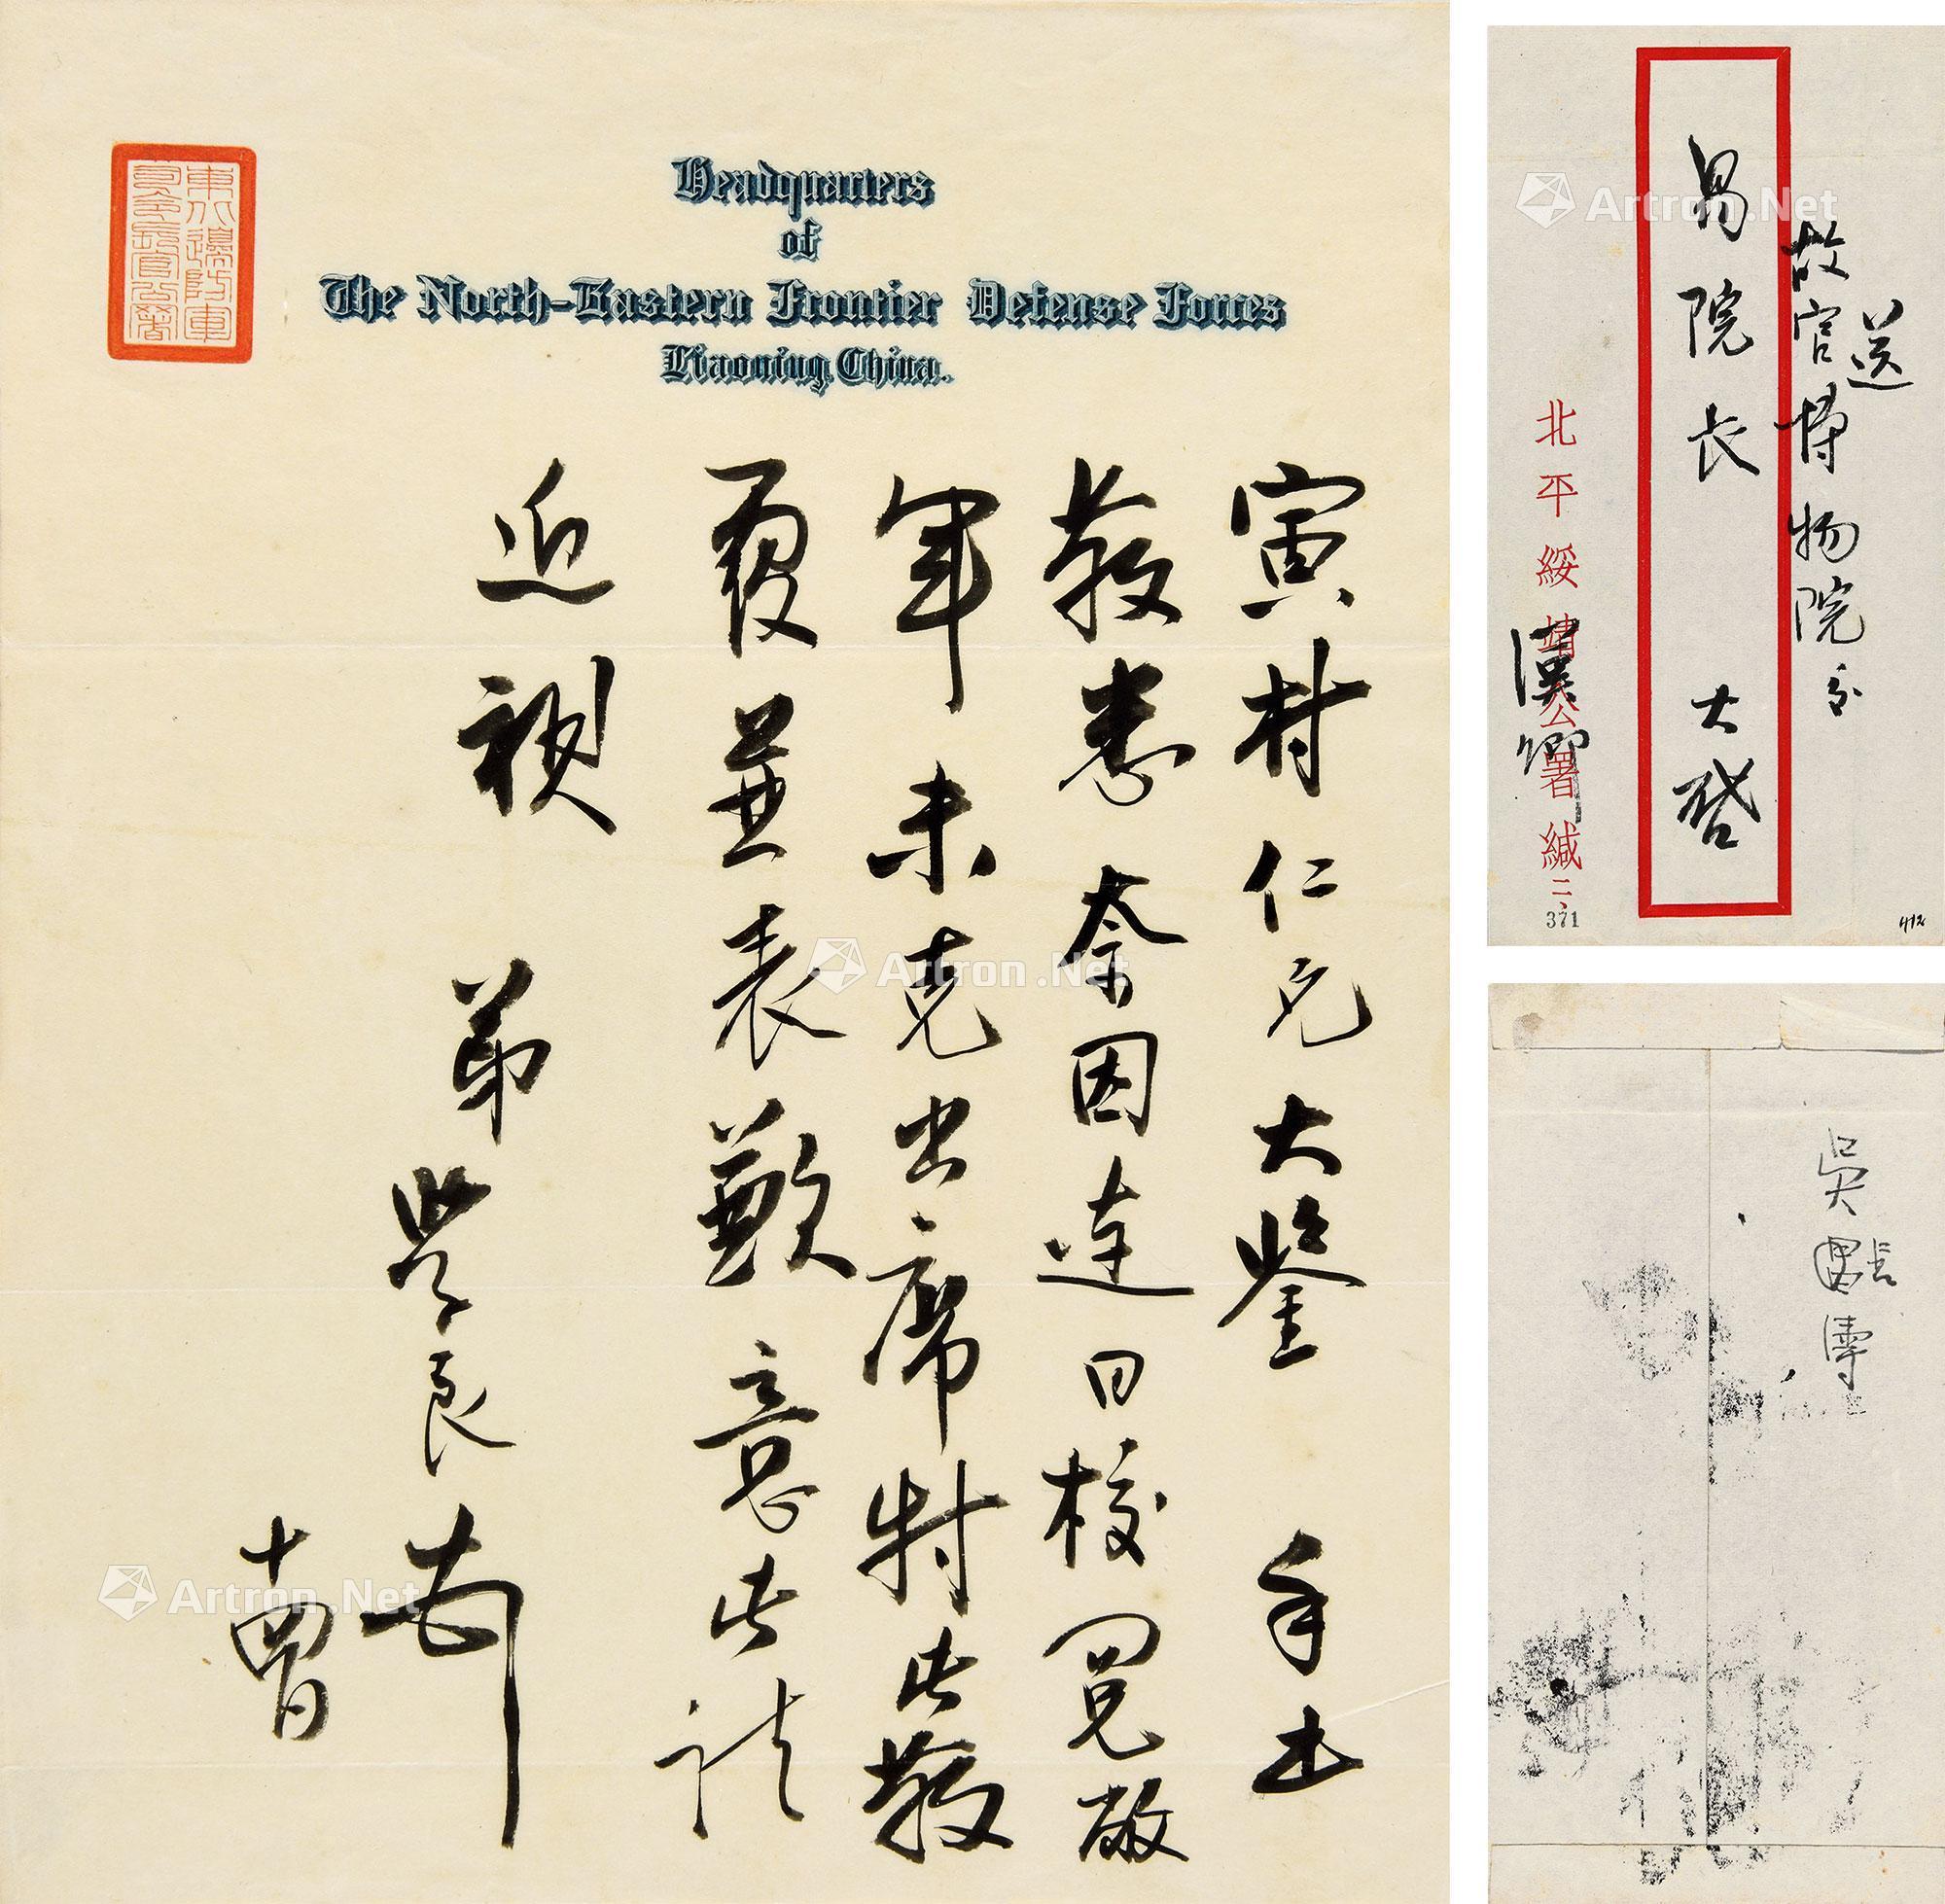 東北邊防軍
司令長官公署
Headquarters
of
The North-Eastern Frontier Defense Forces
Liaoning, China.
寅村仁兄大鑒手书
敬悉奈因連日校閱敝
軍未克出席特此敬
覆並表歉意此請
近祺
弟學良
十四日
送
故宫博物院
易院長 大啓
北平綏靖公署緘
漢卿
371
412
吴
Artron.Net
Artron.Net
Artron.Net